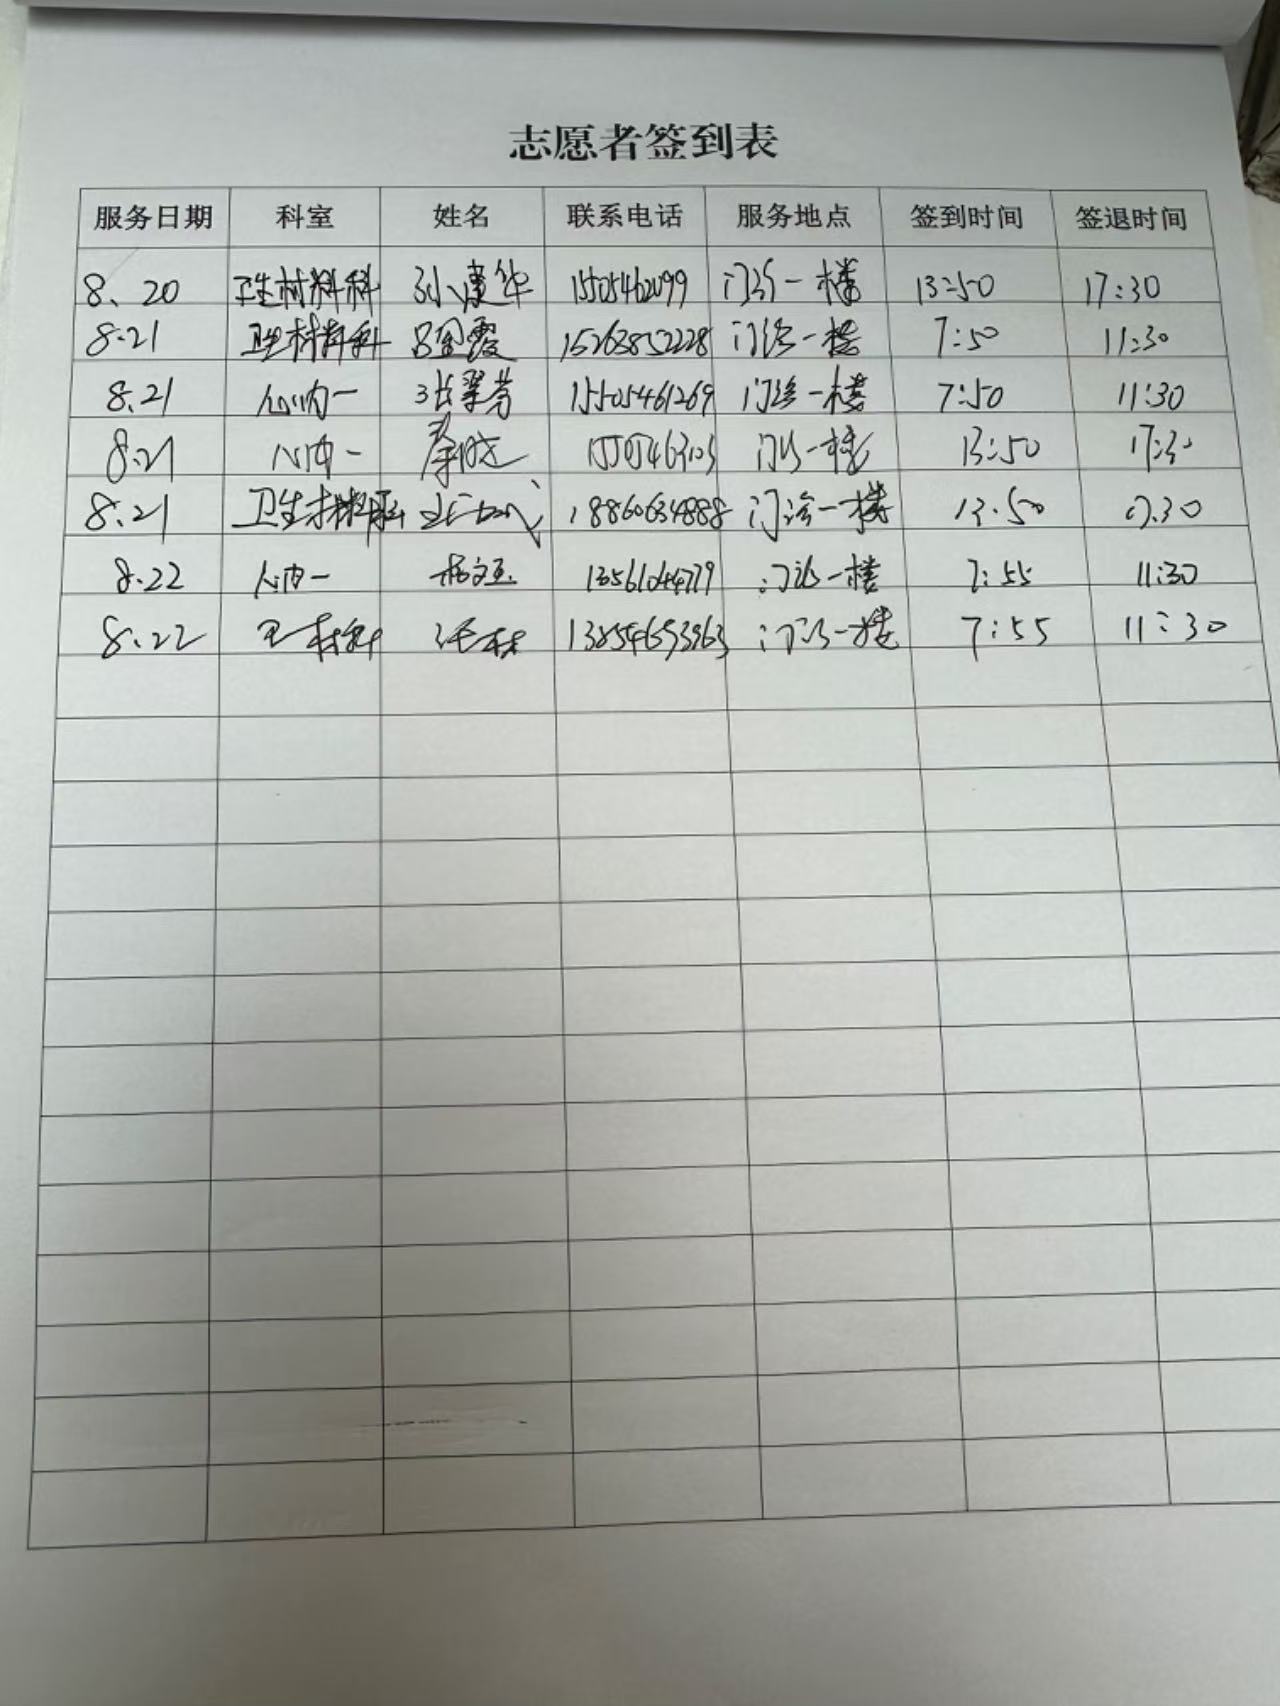 志愿者签到表
服务日期 科室 姓名 联系电话 服务地点 签到时间 签退时间
8、20 卫生材料科 孙建华 15505462099 门诊一楼 13:50 17:30
8.21 卫生材料科 吕国霞 15263852228 门诊一楼 7:50 11:30
8.21 心内一 张翠芳 15505461269 门诊一楼 7:50 11:30
8.21 心内一 门诊一楼 13:50 17:30
8.21 卫生材料科 18860634888 门诊一楼 13.50 17.30
8.22 心内一 门诊一楼 7:55 11:30
8.22 卫材科 门诊一楼 7:55 11:30